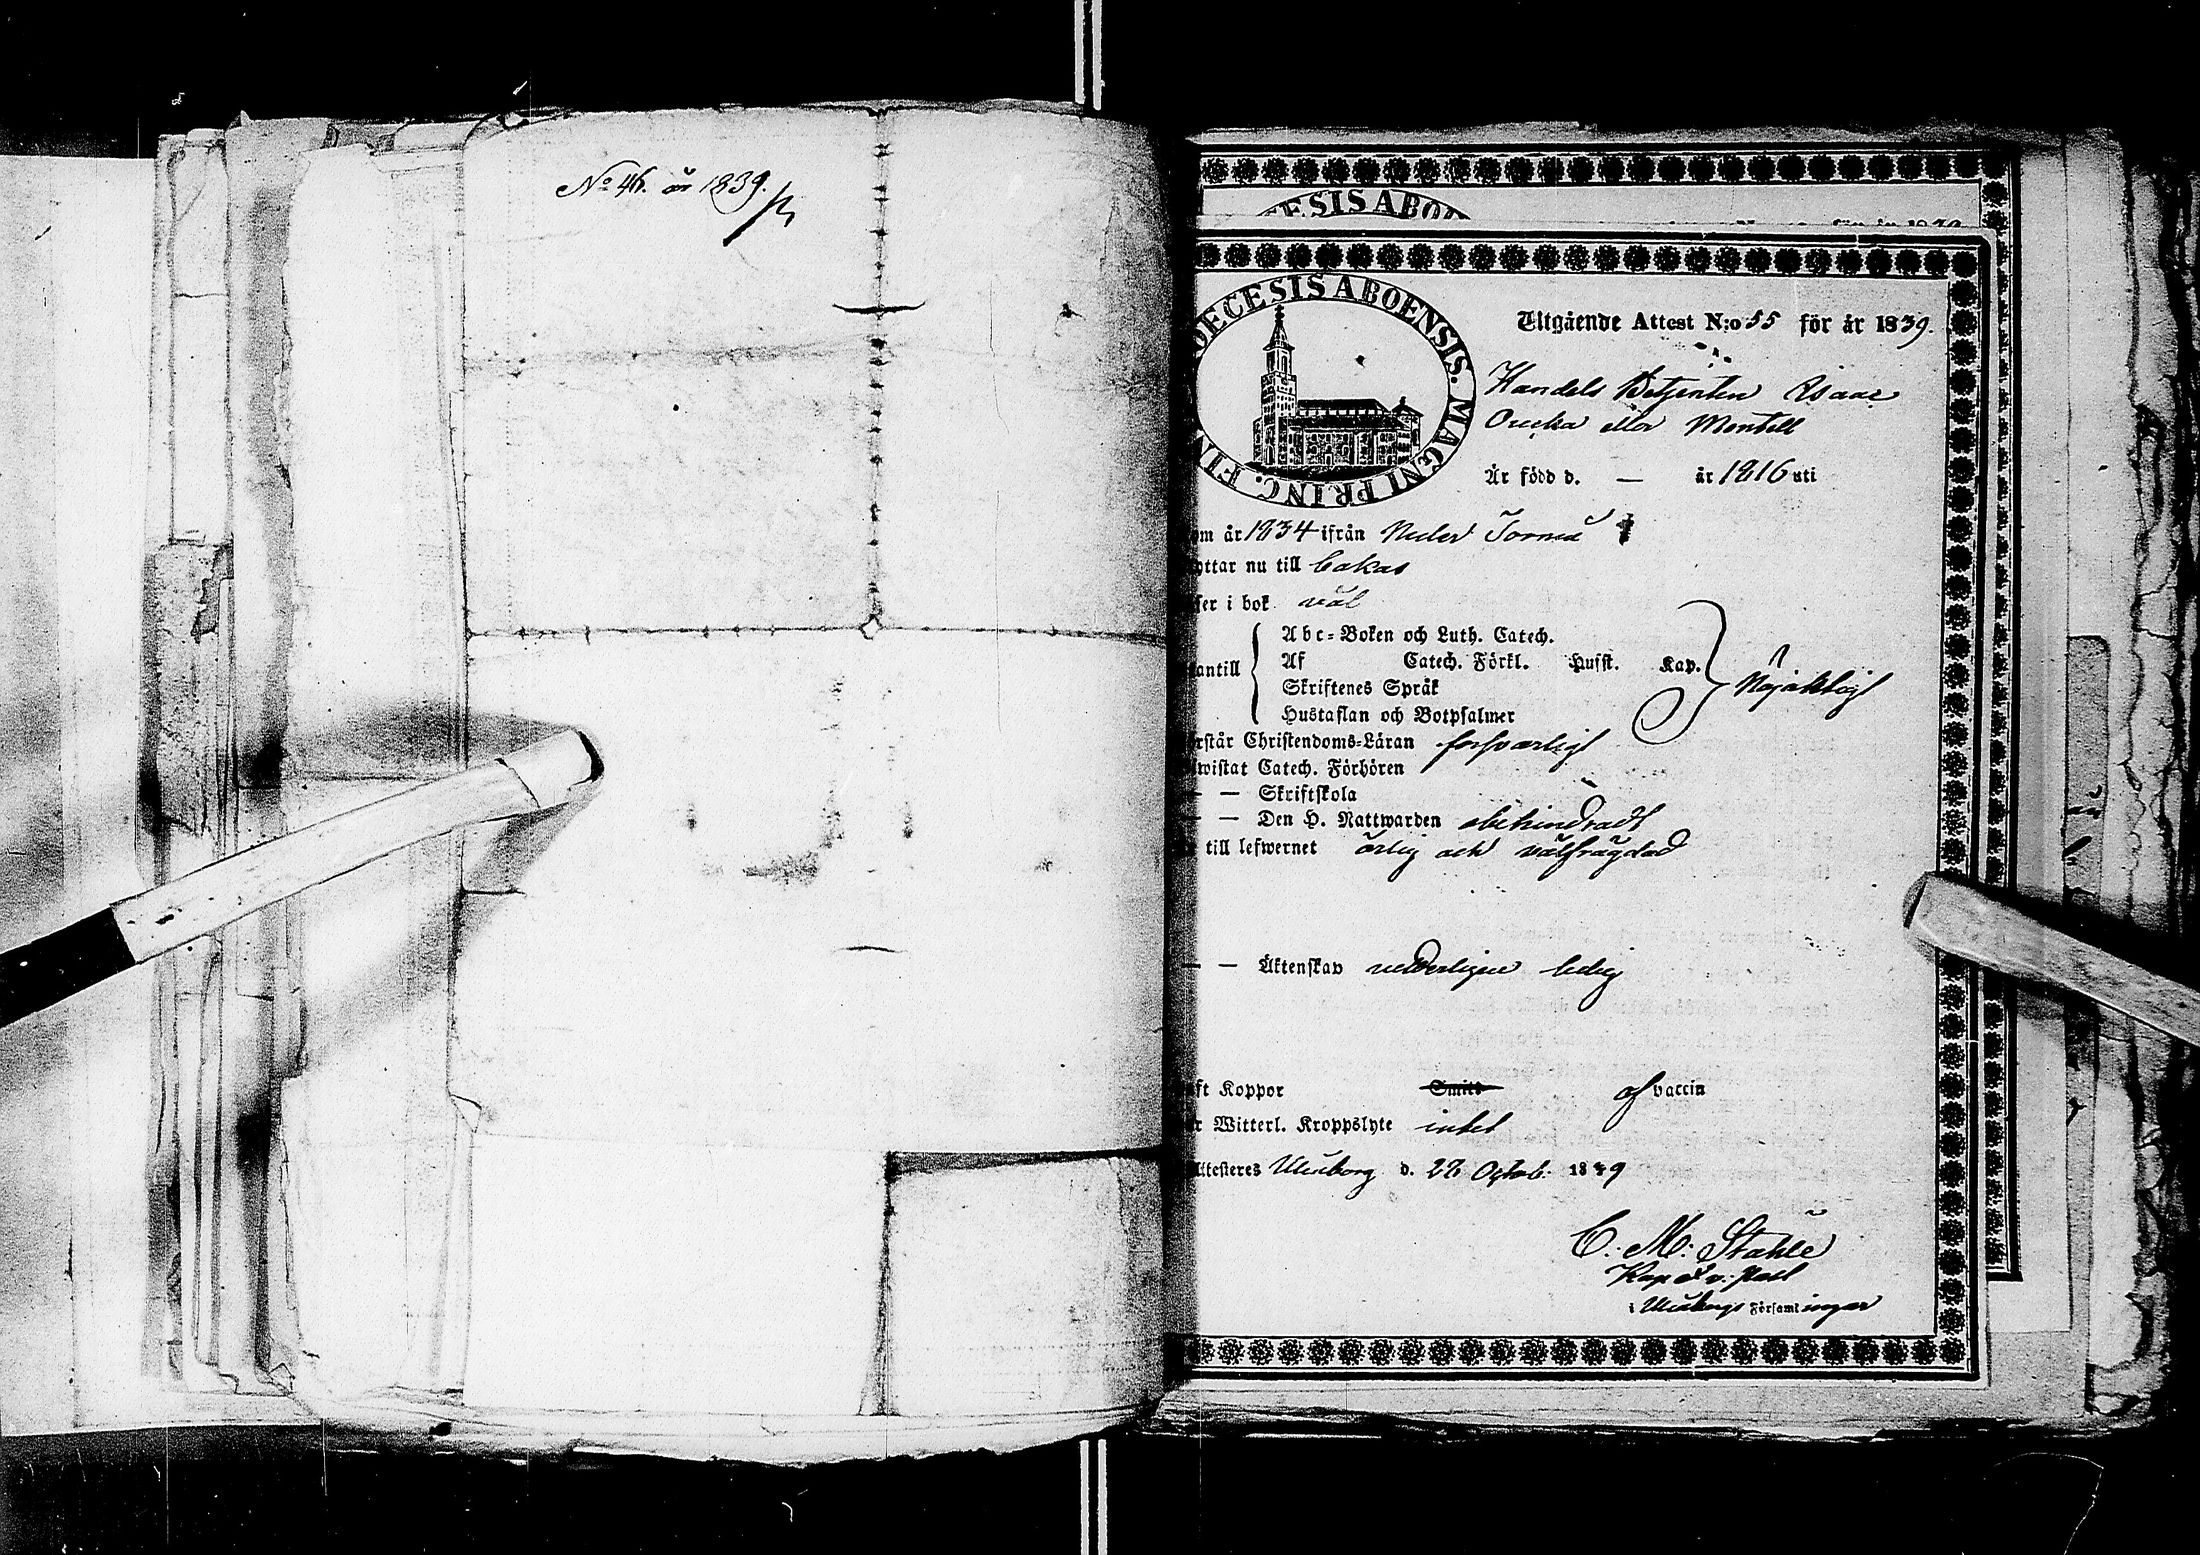 No 46. år 1839.
ESIS ABO
DECESIS ABOENSIS. MAGNI PRINC. FIN
Utgående Attest N:o 55 för år 1839.
Handels Betjenten Isaac
eller Montell
Är född d. — år 1816 uti
om år 1834 ifrån Neder Torneå
ottar nu till bakas
ser i bok väl
Abc-Boken och Luth. Catech.
Af Catech. Förkl. Husst. Kap.
antill
Nöjaktigt
Skriftenes Språk
Hustaflan och Botpsalmer
rstår Christendoms-Läran försvarligt
wistat Catech. Förhören
— — Skriftskola
— — Den H. Nattwarden obehindradt
till lefwernet ärlig och välfrägdad
— — Äktenskap vederligen ledig
ft Koppor Smitt af vaccin
r Witterl. Kroppslyte intet
ttesteres Uleåborg d. 28 Octob. 1839
C. M. Ståhle
Kap. o. v. Past
i Uleåborgs Församlingar